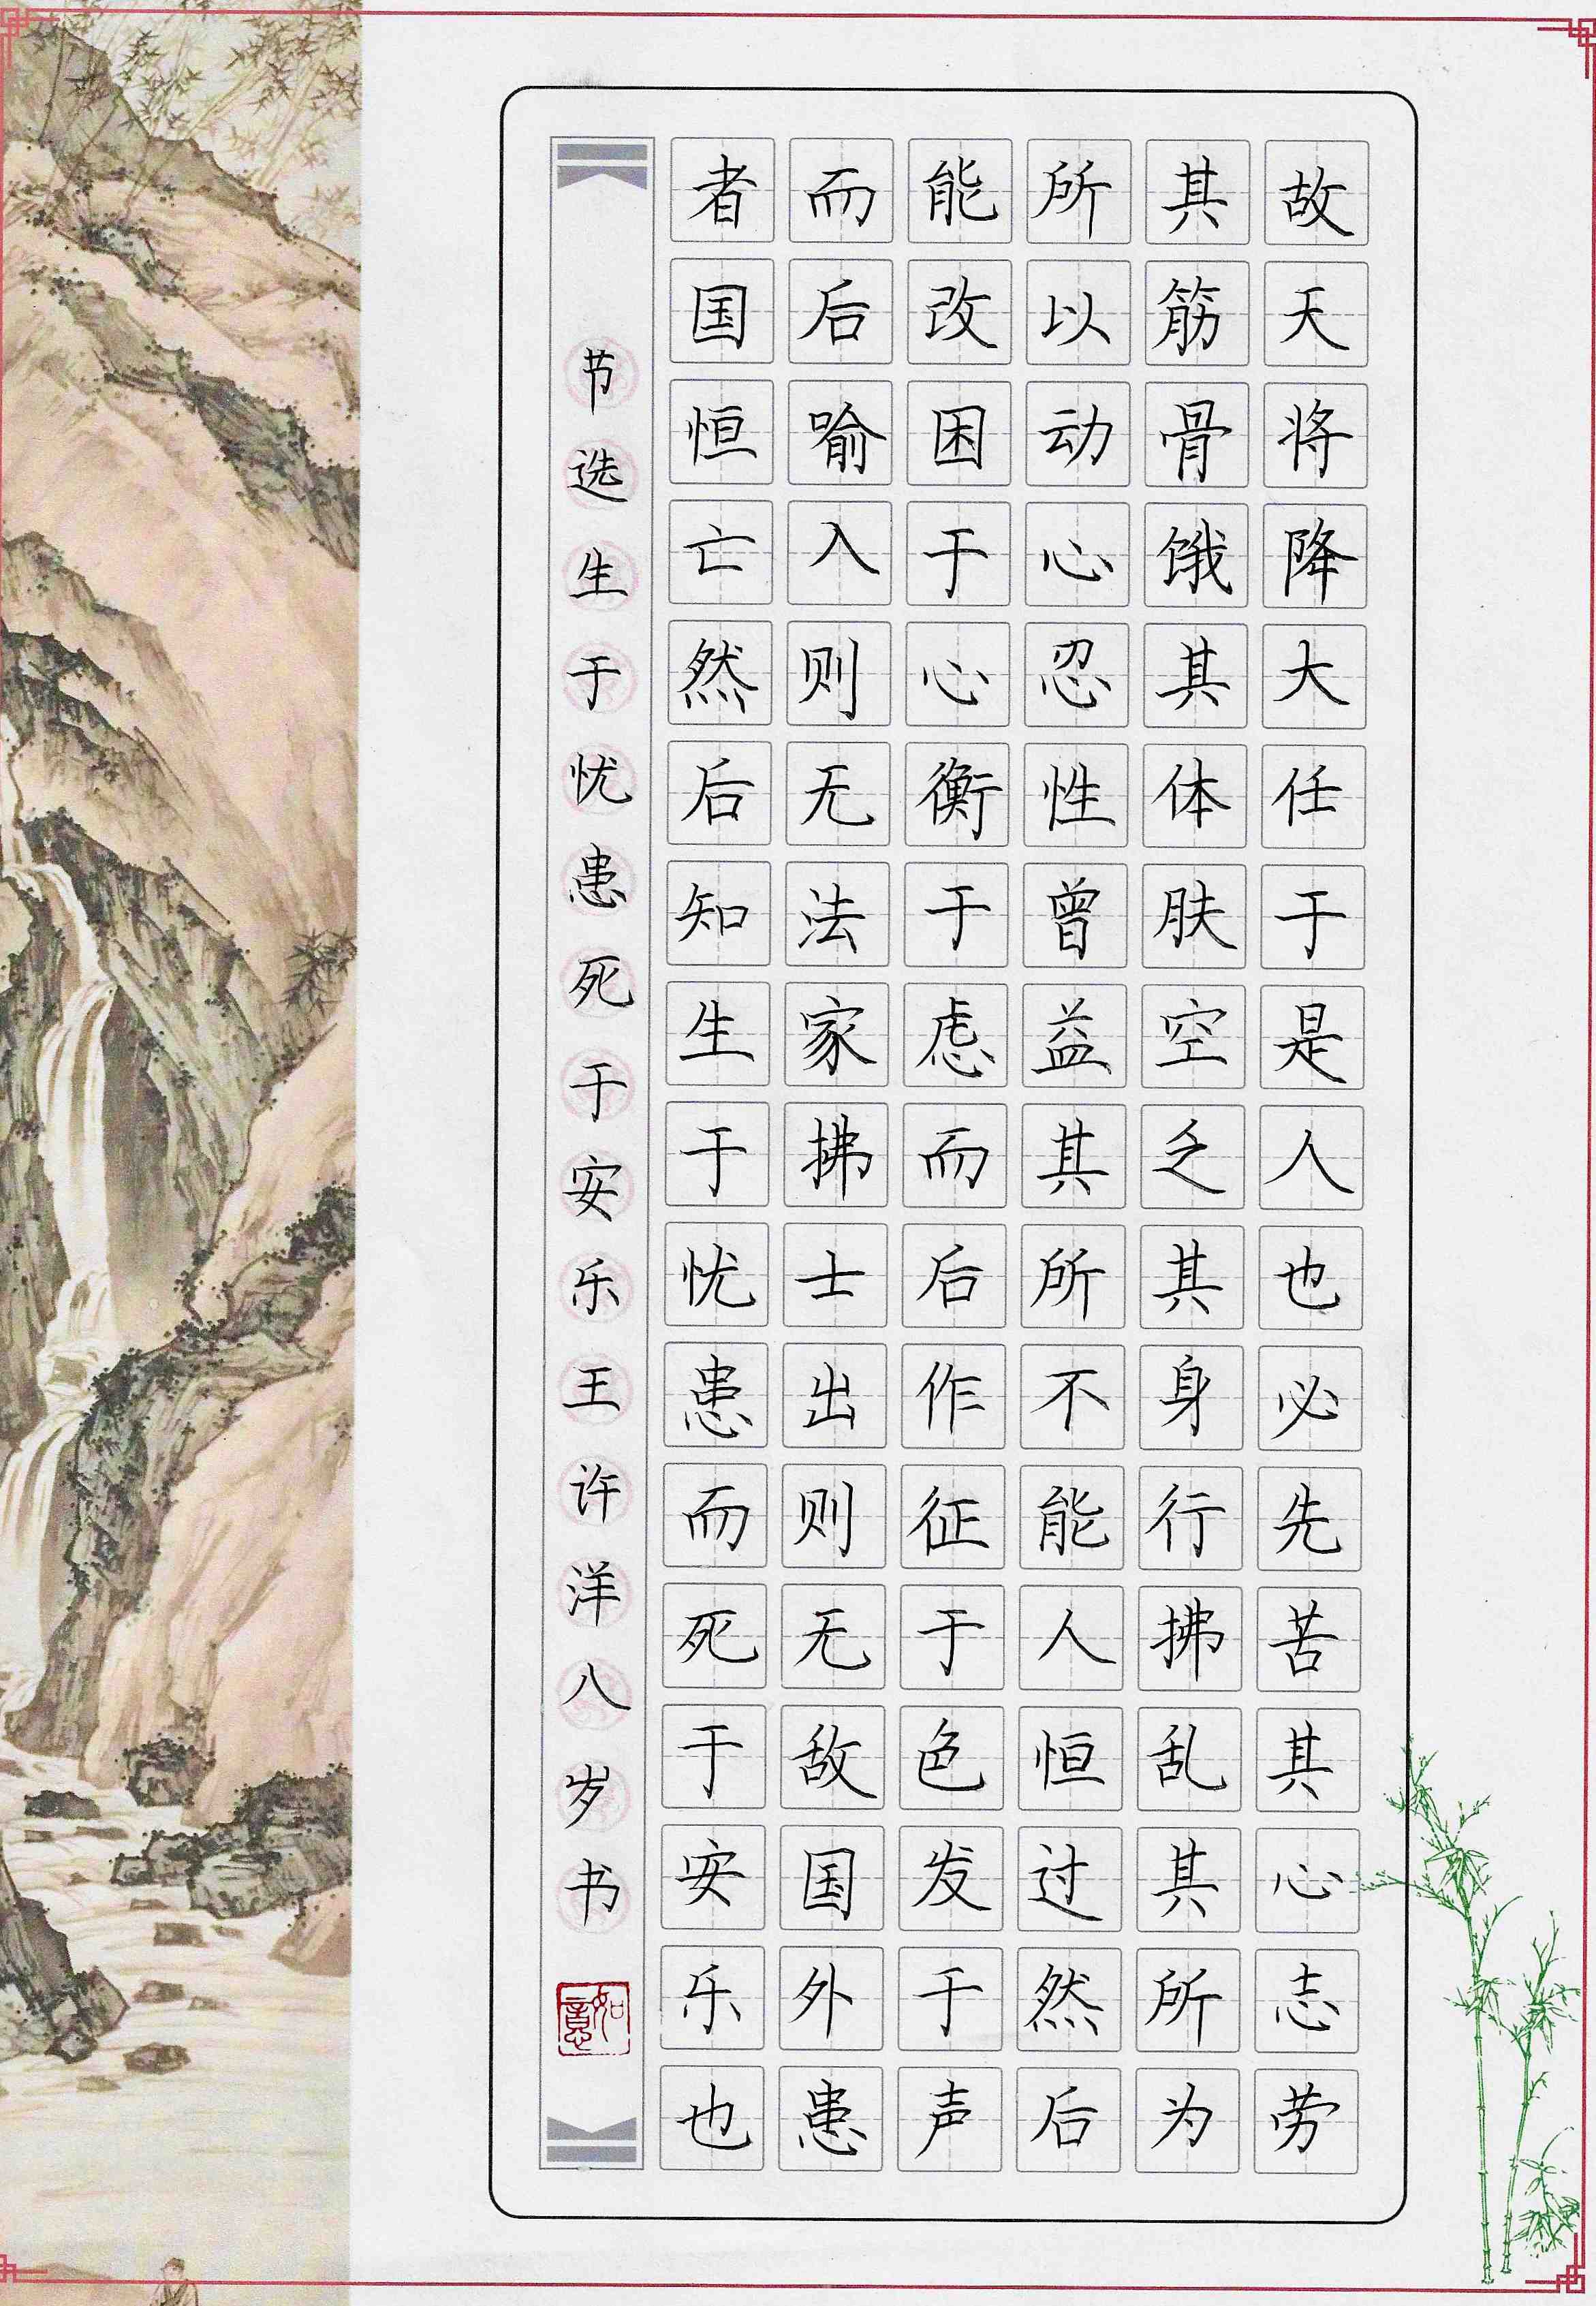 故天将降大任于是人也必先苦其心志劳
其筋骨饿其体肤空乏其身行拂乱其所为
所以动心忍性曾益其所不能人恒过然后
能改困于心衡于虑而后作征于色发于声
而后喻入则无法家拂士出则无敌国外患
者国恒亡然后知生于忧患而死于安乐也
节选生于忧患死于安乐王许洋八岁书
如意